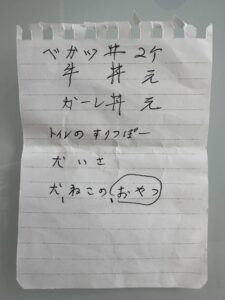 べカツ丼 2ケ
牛 丼 え
ガーレ丼 え
トイレの すりっぱー
犬 いさ
犬、ねこの、おやつ